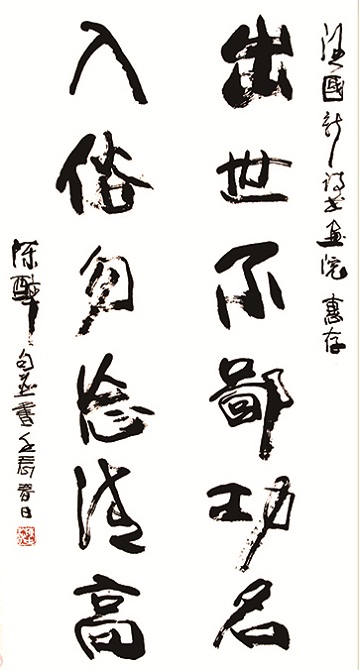 國新诗书画院 惠存
出世不鄙功名
入俗勿忘清高
陈醉句并書壬辰春日